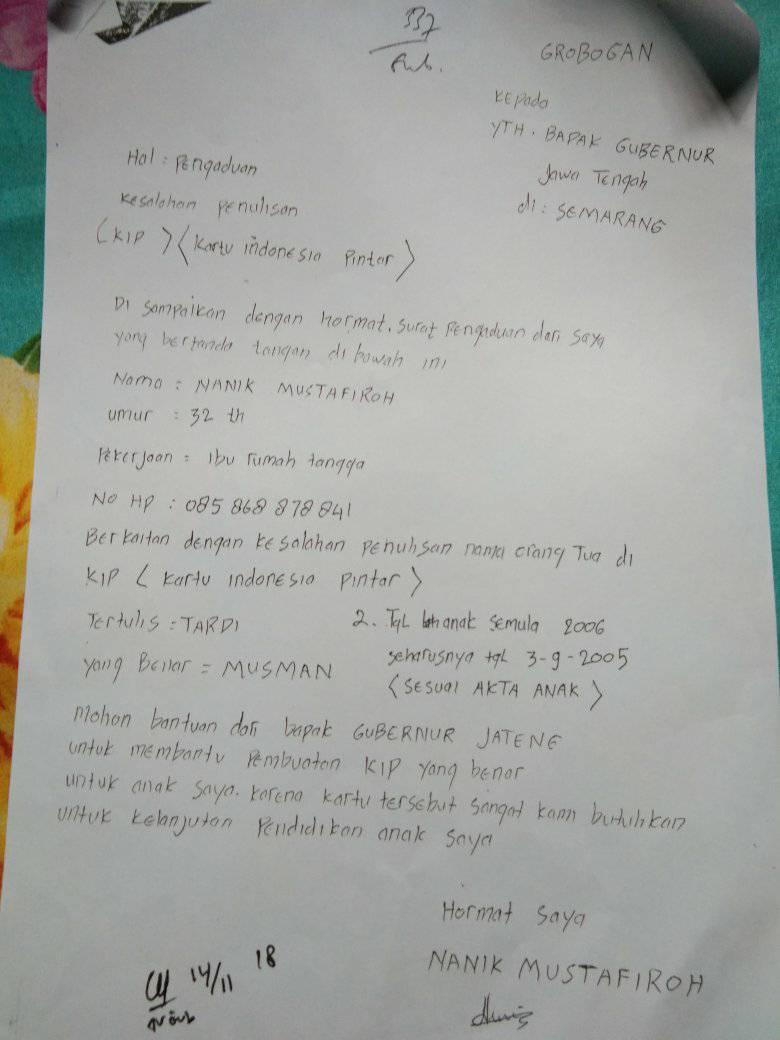 337
GROBOGAN
Kepada
YTH. BAPAK GUBERNUR
Jawa Tengah
di : SEMARANG
Hal : Pengaduan
Kesalahan penulisan
(KIP) (Kartu indonesia Pintar)
Di sampaikan dengan hormat, surat pengaduan dari saya
yang bertanda tangan di bawah ini
Nama : NANIK MUSTAFIROH
umur : 32 th
Pekerjaan = ibu rumah tangga
No HP : 085 868 878 841
Berkaitan dengan kesalahan penulisan nama orang Tua di
KIP ( kartu indonesia pintar )
Tertulis = TARDI
yang Benar = MUSMAN
2. Tgl anak semula 2006
seharusnya tgl 3-9-2005
( SESUAI AKTA ANAK )
Mohon bantuan dari bapak GUBERNUR JATENG
untuk membantu Pembuatan KIP yang benar
untuk anak saya. karena kartu tersebut sangat kami butuhkan
untuk kelanjutan Pendidikan anak saya
Hormat saya
NANIK MUSTAFIROH
14/11 18